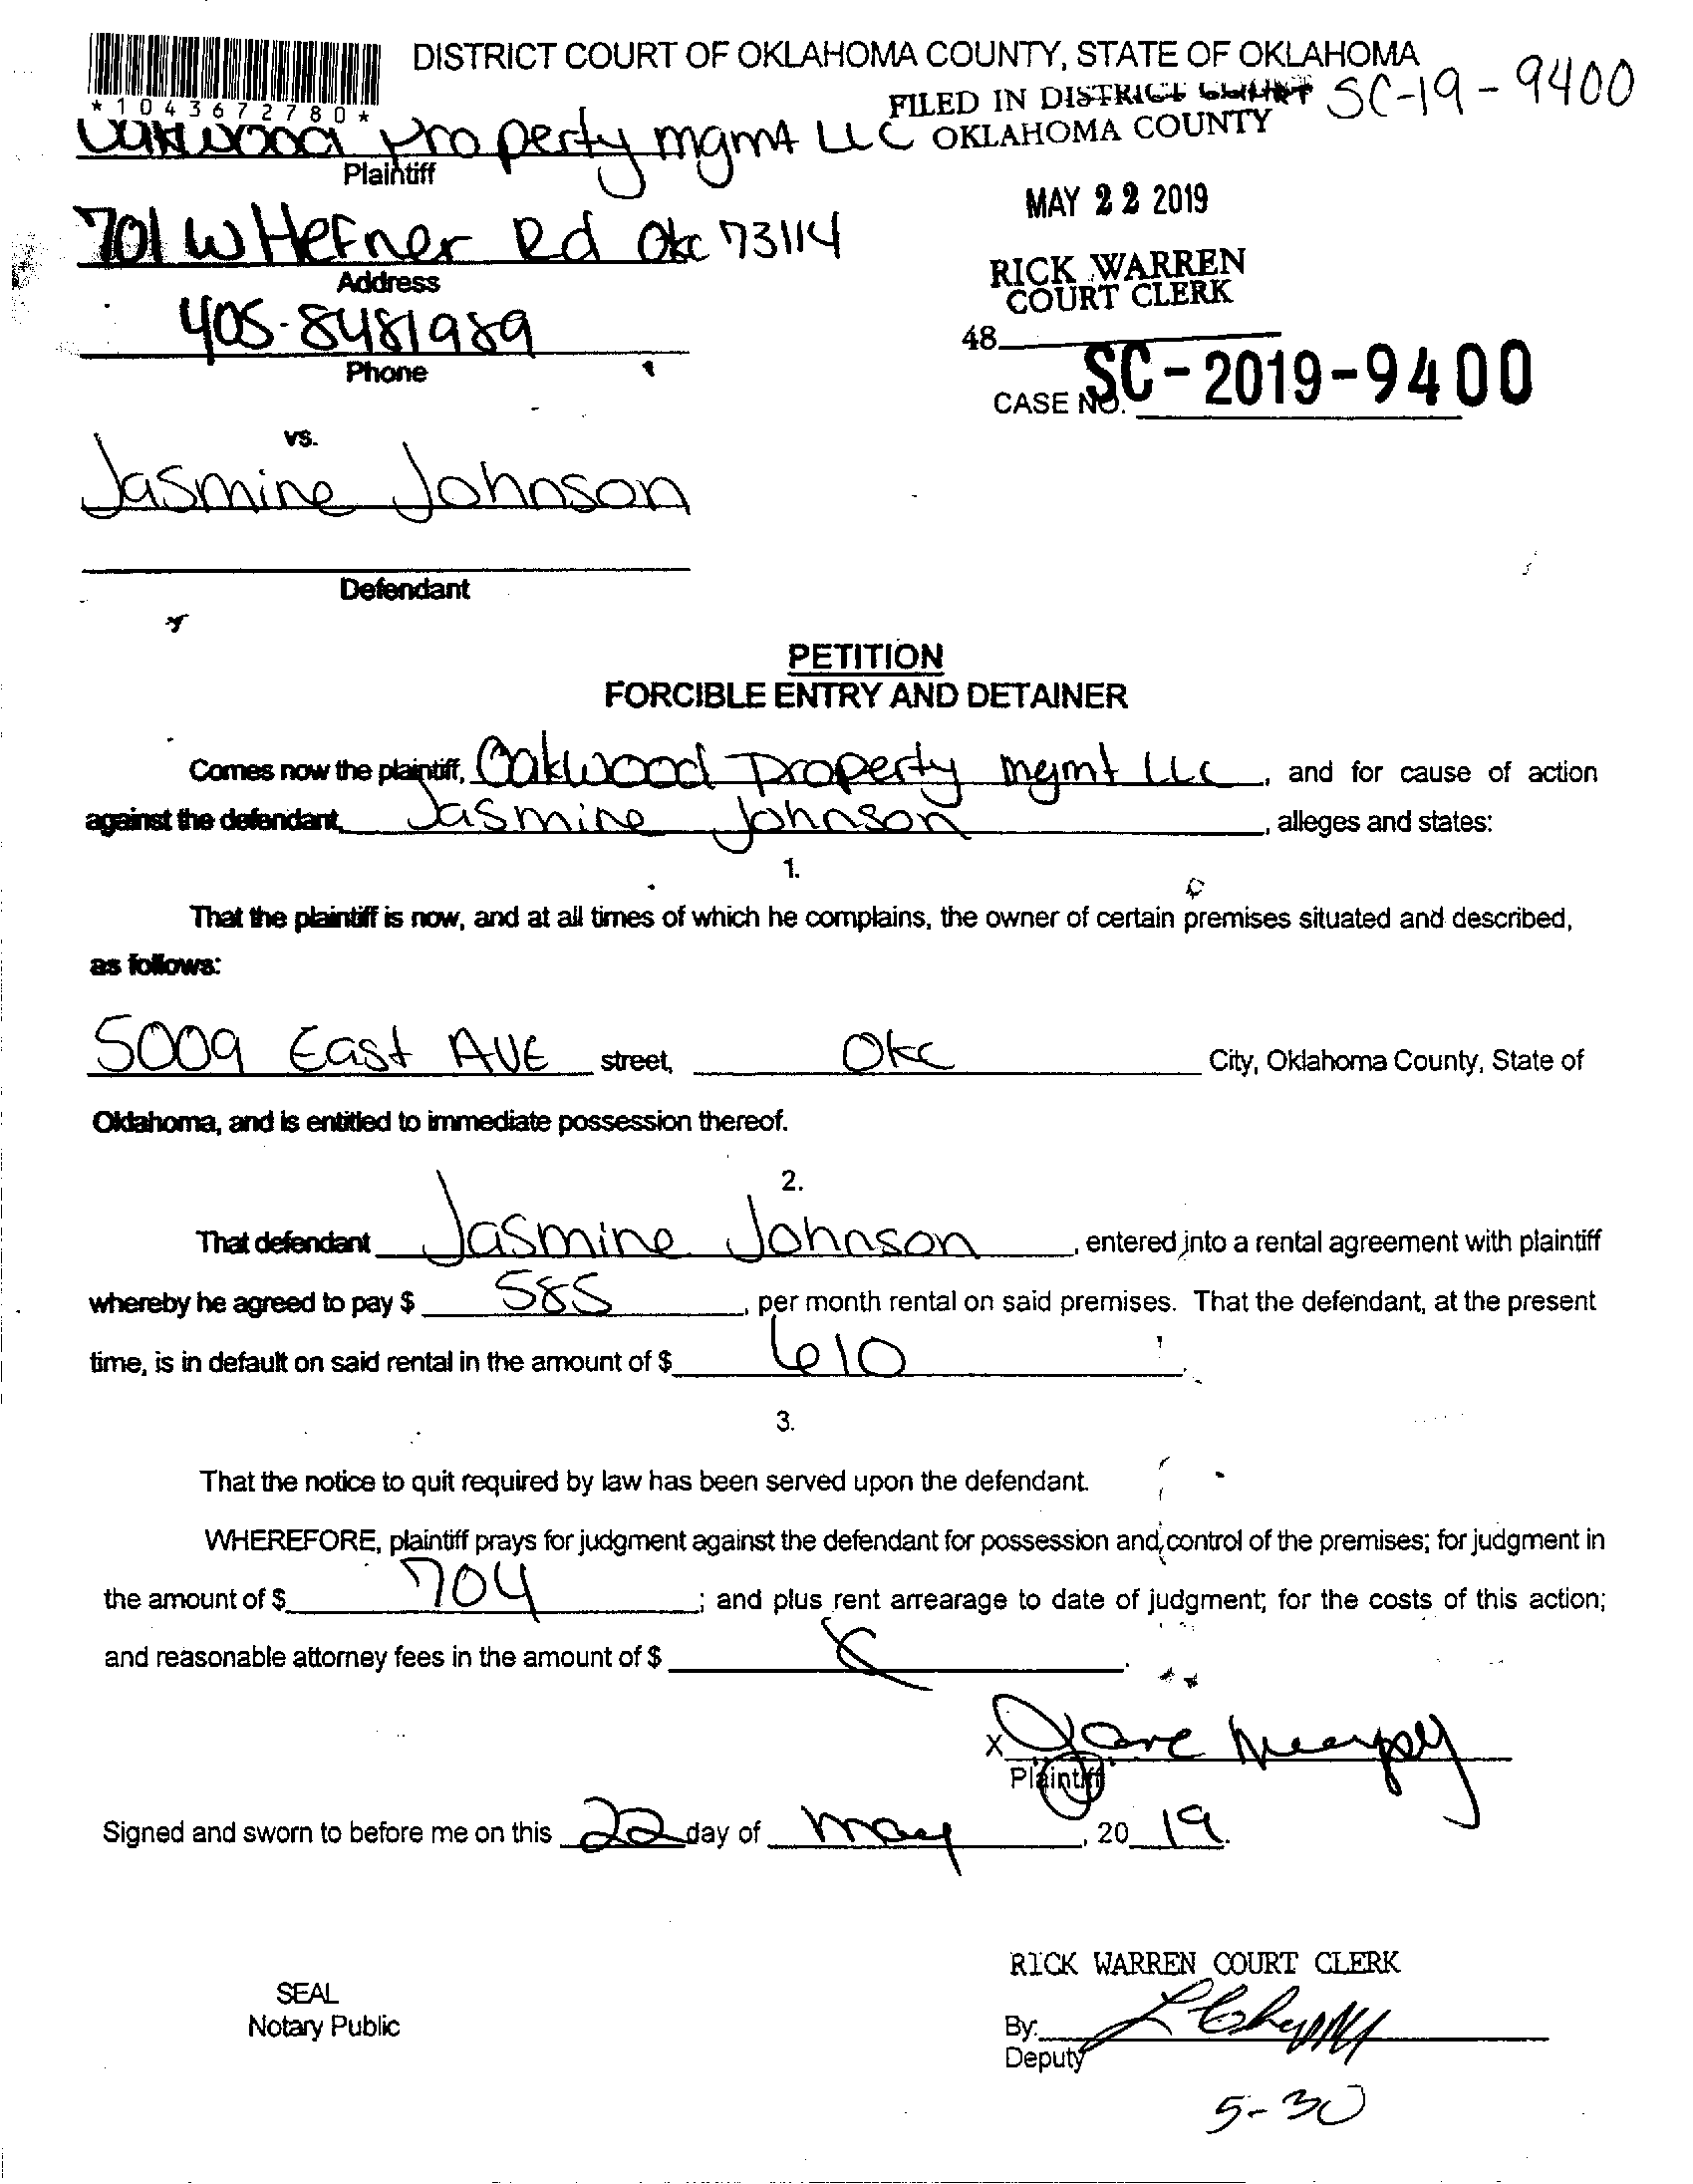 DISTRICT COURT OF OKLAHOMA COUNTY, STATE OF OKLAHOMA
*1043672780*
FILED IN DISTRICT COURT SC-19-9400
OKLAHOMA COUNTY
Oakwood Property mgmt LLC
Plaintiff
MAY 22 2019
701 W Hefner Rd Okc 73114
Address
RICK WARREN
COURT CLERK
405-8481989
Phone
48
CASE NO. SC-2019-9400
vs.
Jasmine Johnson
Defendant
PETITION
FORCIBLE ENTRY AND DETAINER
Comes now the plaintiff, Oakwood Property mgmt LLC, and for cause of action
against the defendant, Jasmine Johnson, alleges and states:
1.
That the plaintiff is now, and at all times of which he complains, the owner of certain premises situated and described,
as follows:
5009 East AVE street, Okc City, Oklahoma County, State of
Oklahoma, and is entitled to immediate possession thereof.
2.
That defendant Jasmine Johnson, entered into a rental agreement with plaintiff
whereby he agreed to pay $ 585, per month rental on said premises. That the defendant, at the present
time, is in default on said rental in the amount of $ 610.
3.
That the notice to quit required by law has been served upon the defendant.
WHEREFORE, plaintiff prays for judgment against the defendant for possession and control of the premises; for judgment in
the amount of $ 704; and plus rent arrearage to date of judgment; for the costs of this action;
and reasonable attorney fees in the amount of $
X
Plaintiff
Signed and sworn to before me on this 22 day of May, 2019.
RICK WARREN COURT CLERK
SEAL
Notary Public
By:
Deputy
5-30